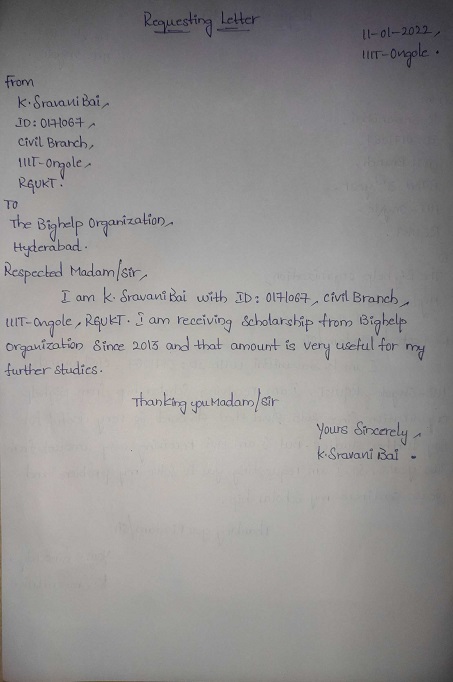 Requesting Letter
11-01-2022,
IIIT-Ongole.
From
K. Sravani Bai,
ID: O171067,
Civil Branch,
IIIT-Ongole,
RGUKT.
To
The Bighelp Organization,
Hyderabad.
Respected Madam/sir,
I am K. Sravani Bai with ID: O171067, Civil Branch,
IIIT-Ongole, RGUKT. I am receiving Scholarship from Bighelp
Organization Since 2013 and that amount is very useful for my
further studies.
Thanking you Madam/sir
Yours Sincerely,
K. Sravani Bai.